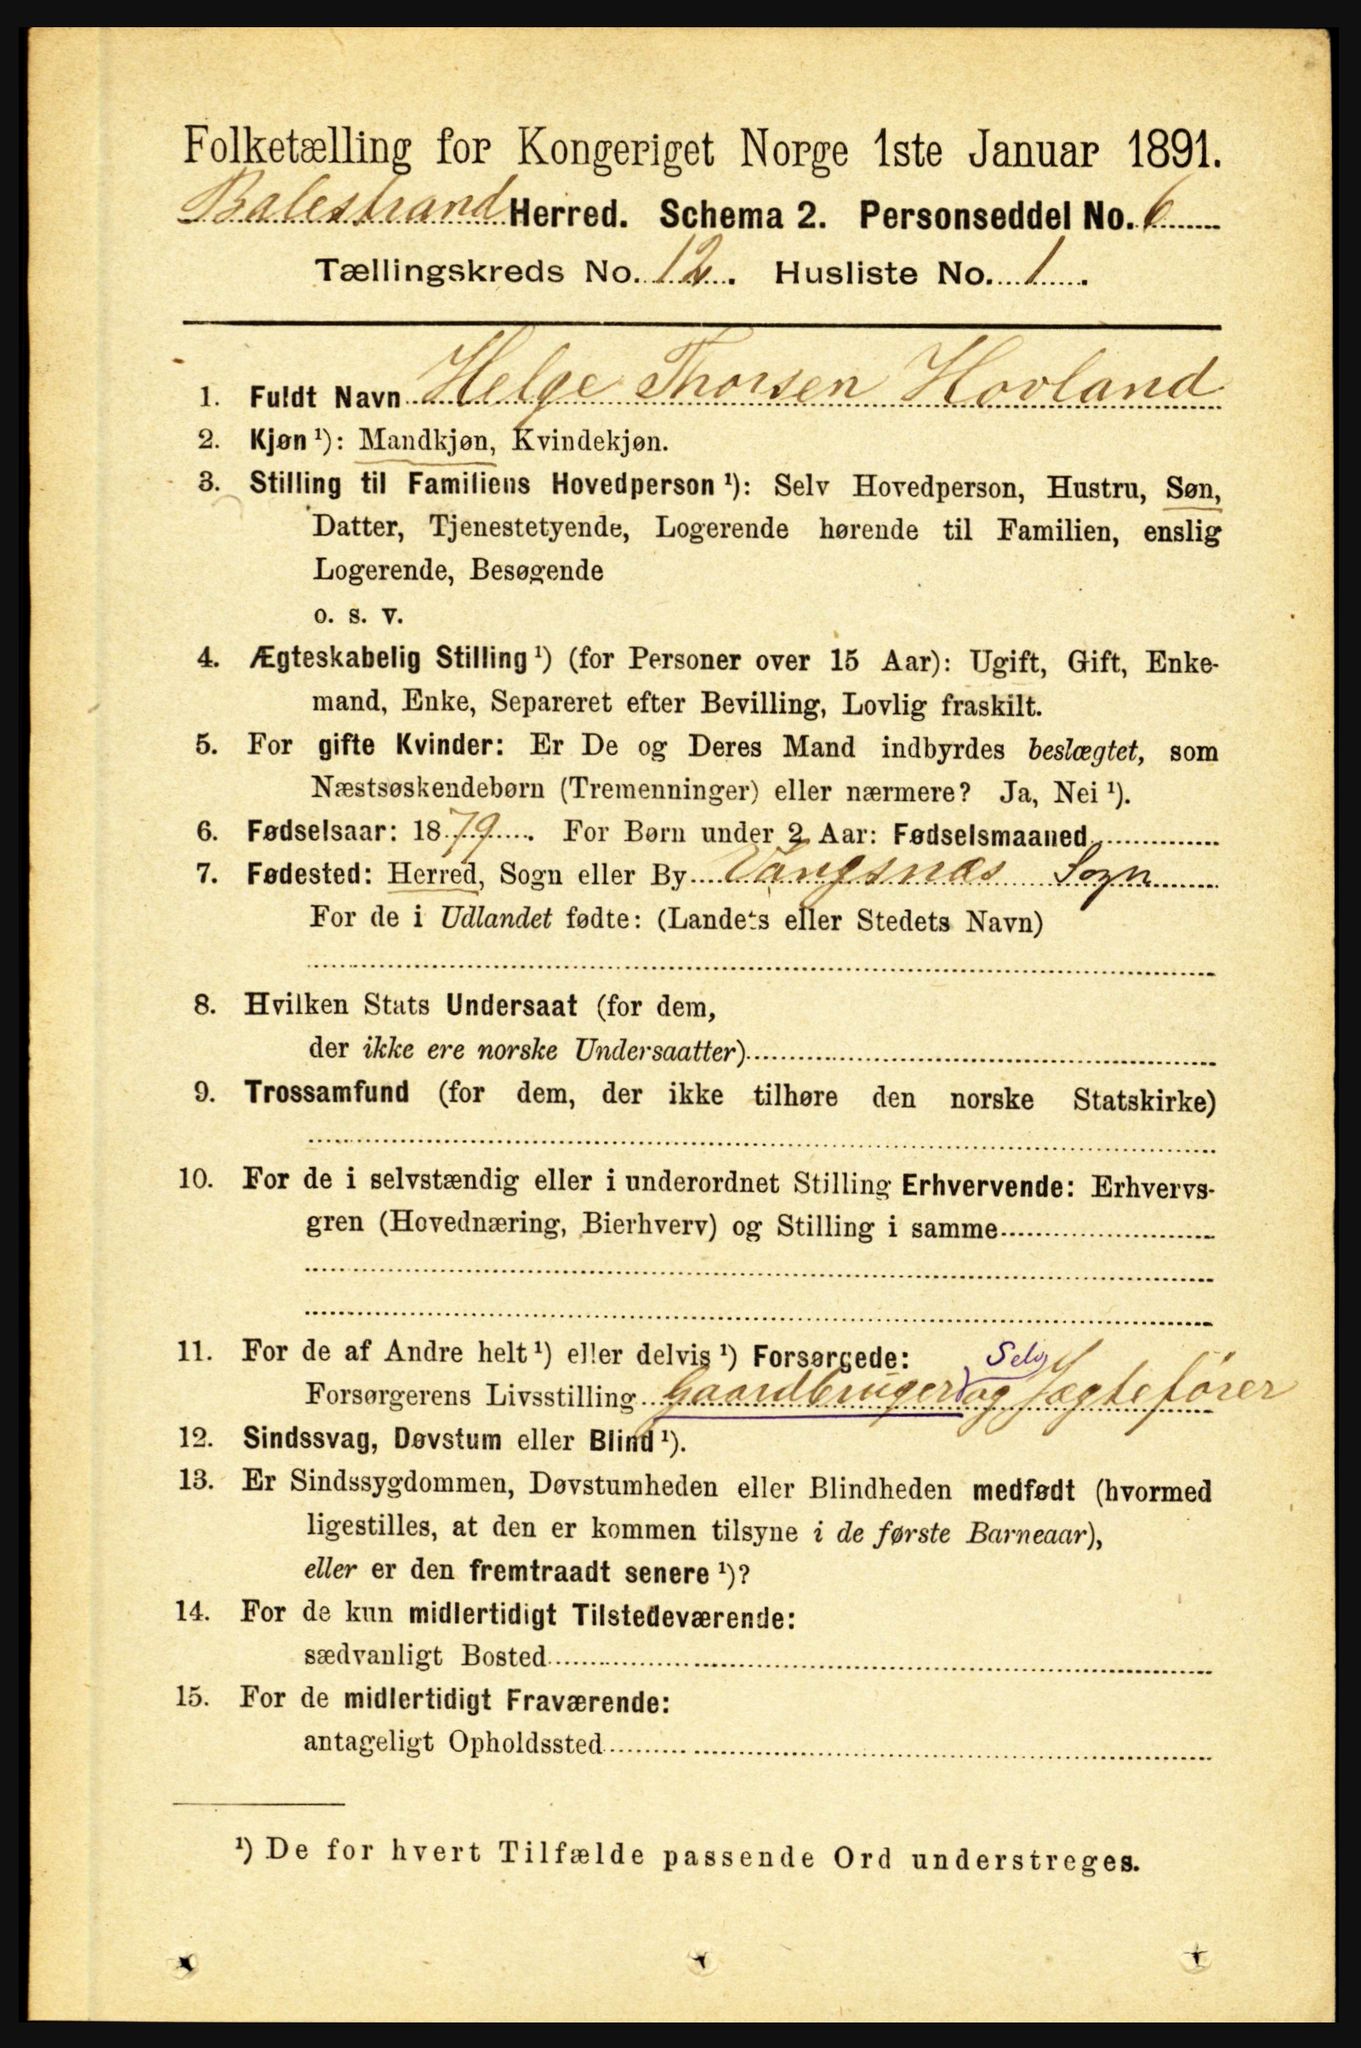 Folketælling for Kongeriget Norge 1ste Januar 1891.
Balestrand Herred. Schema 2. Personseddel No. 6
Tællingskreds No. 12. Husliste No. 1.
1. Fuldt Navn Helge Thorsen Hovland
2. Kjøn ¹): Mandkjøn, Kvindekjøn.
3. Stilling til Familiens Hovedperson ¹): Selv Hovedperson, Hustru, Søn,
Datter, Tjenestetyende, Logerende hørende til Familien, enslig
Logerende, Besøgende
o. s. v.
4. Ægteskabelig Stilling ¹) (for Personer over 15 Aar): Ugift, Gift, Enke-
mand, Enke, Separeret efter Bevilling, Lovlig fraskilt.
5. For gifte Kvinder: Er De og Deres Mand indbyrdes beslægtet, som
Næstsøskendebørn (Tremenninger) eller nærmere? Ja, Nei ¹).
6. Fødselsaar: 1879. For Børn under 2 Aar: Fødselsmaaned
7. Fødested: Herred, Sogn eller By Vangsnæs Sogn
For de i Udlandet fødte: (Landets eller Stedets Navn)
8. Hvilken Stats Undersaat (for dem,
der ikke ere norske Undersaatter)
9. Trossamfund (for dem, der ikke tilhøre den norske Statskirke)
10. For de i selvstændig eller i underordnet Stilling Erhvervende: Erhvervs-
gren (Hovednæring, Bierhverv) og Stilling i samme
11. For de af Andre helt ¹) eller delvis ¹) Forsørgede:
Selv
Forsørgerens Livsstilling Gaardbruger og Jægtefører
12. Sindssvag, Døvstum eller Blind ¹).
13. Er Sindssygdommen, Døvstumheden eller Blindheden medfødt (hvormed
ligestilles, at den er kommen tilsyne i de første Barneaar),
eller er den fremtraadt senere ¹)?
14. For de kun midlertidigt Tilstedeværende:
sædvanligt Bosted
15. For de midlertidigt Fraværende:
antageligt Opholdssted
¹) De for hvert Tilfælde passende Ord understreges.